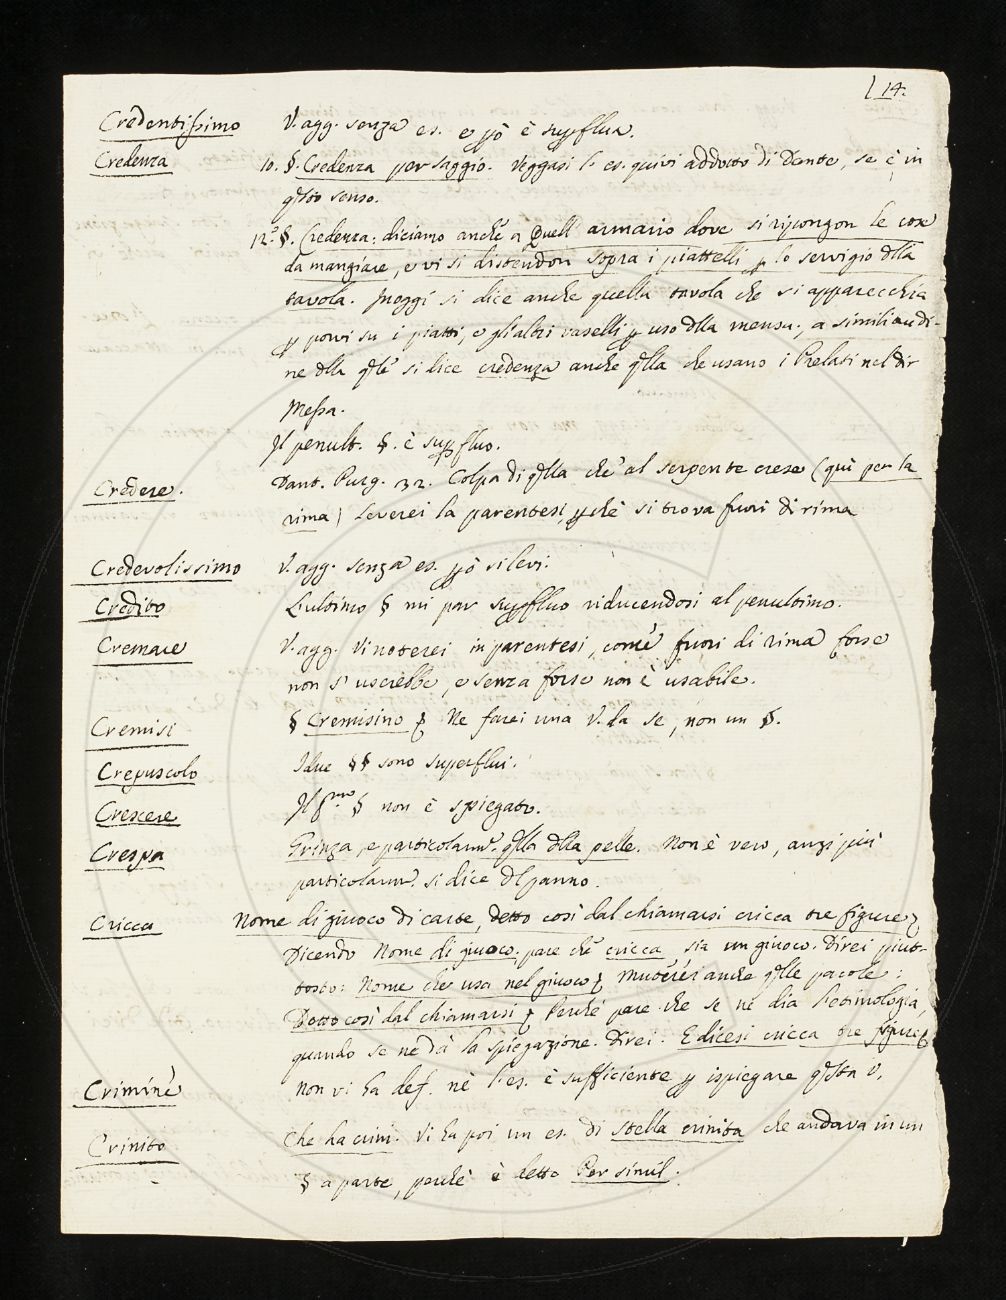 14.
Credentissimo V. agg. senza es. e pò è supflua.
Credenza 10. §. Credenza per saggio. Veggasi l'es. quivi addotto di Dante, se è in
qsto senso.
12º §. Credenza: diciamo anche a Quell'armario dove si ripongon le cose
da mangiare, e vi si distendon sopra i piattelli p lo servigio dlla
tavola. Inoggi si dice anche quella tavola che si apparecchia
p porvi su i piatti, e gli altri vaselli p uso dlla mensa; a similitudi-
ne dlla qle si dice credenza anche qlla che usano i Prelati nel dir
Messa.
Il penult. §. è supfluo.
Credere. Dant. Purg. 32. Colpa di qlla che al serpente crese (quì per la
rima) Leverei la parentesi, pchè si trova fuori di rima
Credevolissimo V. agg. senza es. pò si levi.
Credito L'ultimo § mi par supfluo riducendosi al penultimo.
Cremare V. agg. Vi noterei in parentesi, come fuori di rima forse
non s'userebbe, e senza forse non è usabile.
Cremisi § Cremisino Ne farei una V. da se, non un §.
Crepuscolo I due §§ sono superflui.
Crescere Il pmo § non è spiegato.
Crespa Grinza, e particolarmte. qlla dlla pelle. Non è vero, anzi più
particolarmte. si dice dl panno.
Cricca Nome di giuoco di carte, detto così dal chiamarsi cricca tre figure
Dicendo Nome di giuoco, pare che cricca sia un giuoco. Direi piut-
tosto: Nome che usa nel giuoco Muterei anche qlle parole:
Detto così dal chiamarsi Perchè pare che se ne dia l'etimologia,
quando se ne dà la spiegazione. Direi: E dicesi cricca tre figure
Criminè Non vi ha def. nè l'es. è sufficiente p ispiegare qsta V.
Crinito Che ha crini. Vi ha poi un es. di stella crinita che andava in un
§ a parte, perchè è detto Per simil.